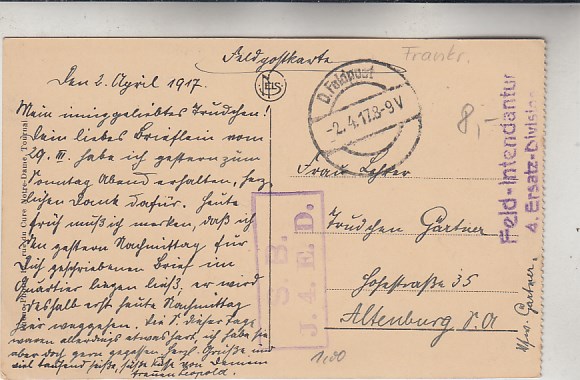 Feldpostkarte
Frankr.
Den 2. April 1917.
NELS
D. Feldpost
-2.4.17.8-9V
8,-
Mein inniggeliebtes Trudchen!
Dein liebes Brieflein vom
29. III. habe ich gestern zum
Sonntag Abend erhalten, herz
lichen Dank dafür. Heute
früh muß ich merken, daß ich
den gestern Nachmittag für
Dich geschriebenen Brief im
Quartier liegen ließ, er wird
deshalb erst heute Nachmittag
hier weggehen. Die dieser Tage
waren allerdings etwas hart, ich habe sie
aber doch gern gegessen. Herzl. Grüße und
viel tausend heiße, süße Küsse von Deinem
treuen Leopold.
Cure Notre-Dame, Tournai
S. B.
J. 4. E. D.
Frau Lehrer
Trudchen Gärtner
Hohestraße 35
Altenburg S.A
Feld-Intendantur
4. Ersatz-Division
Gärtner.
1,00